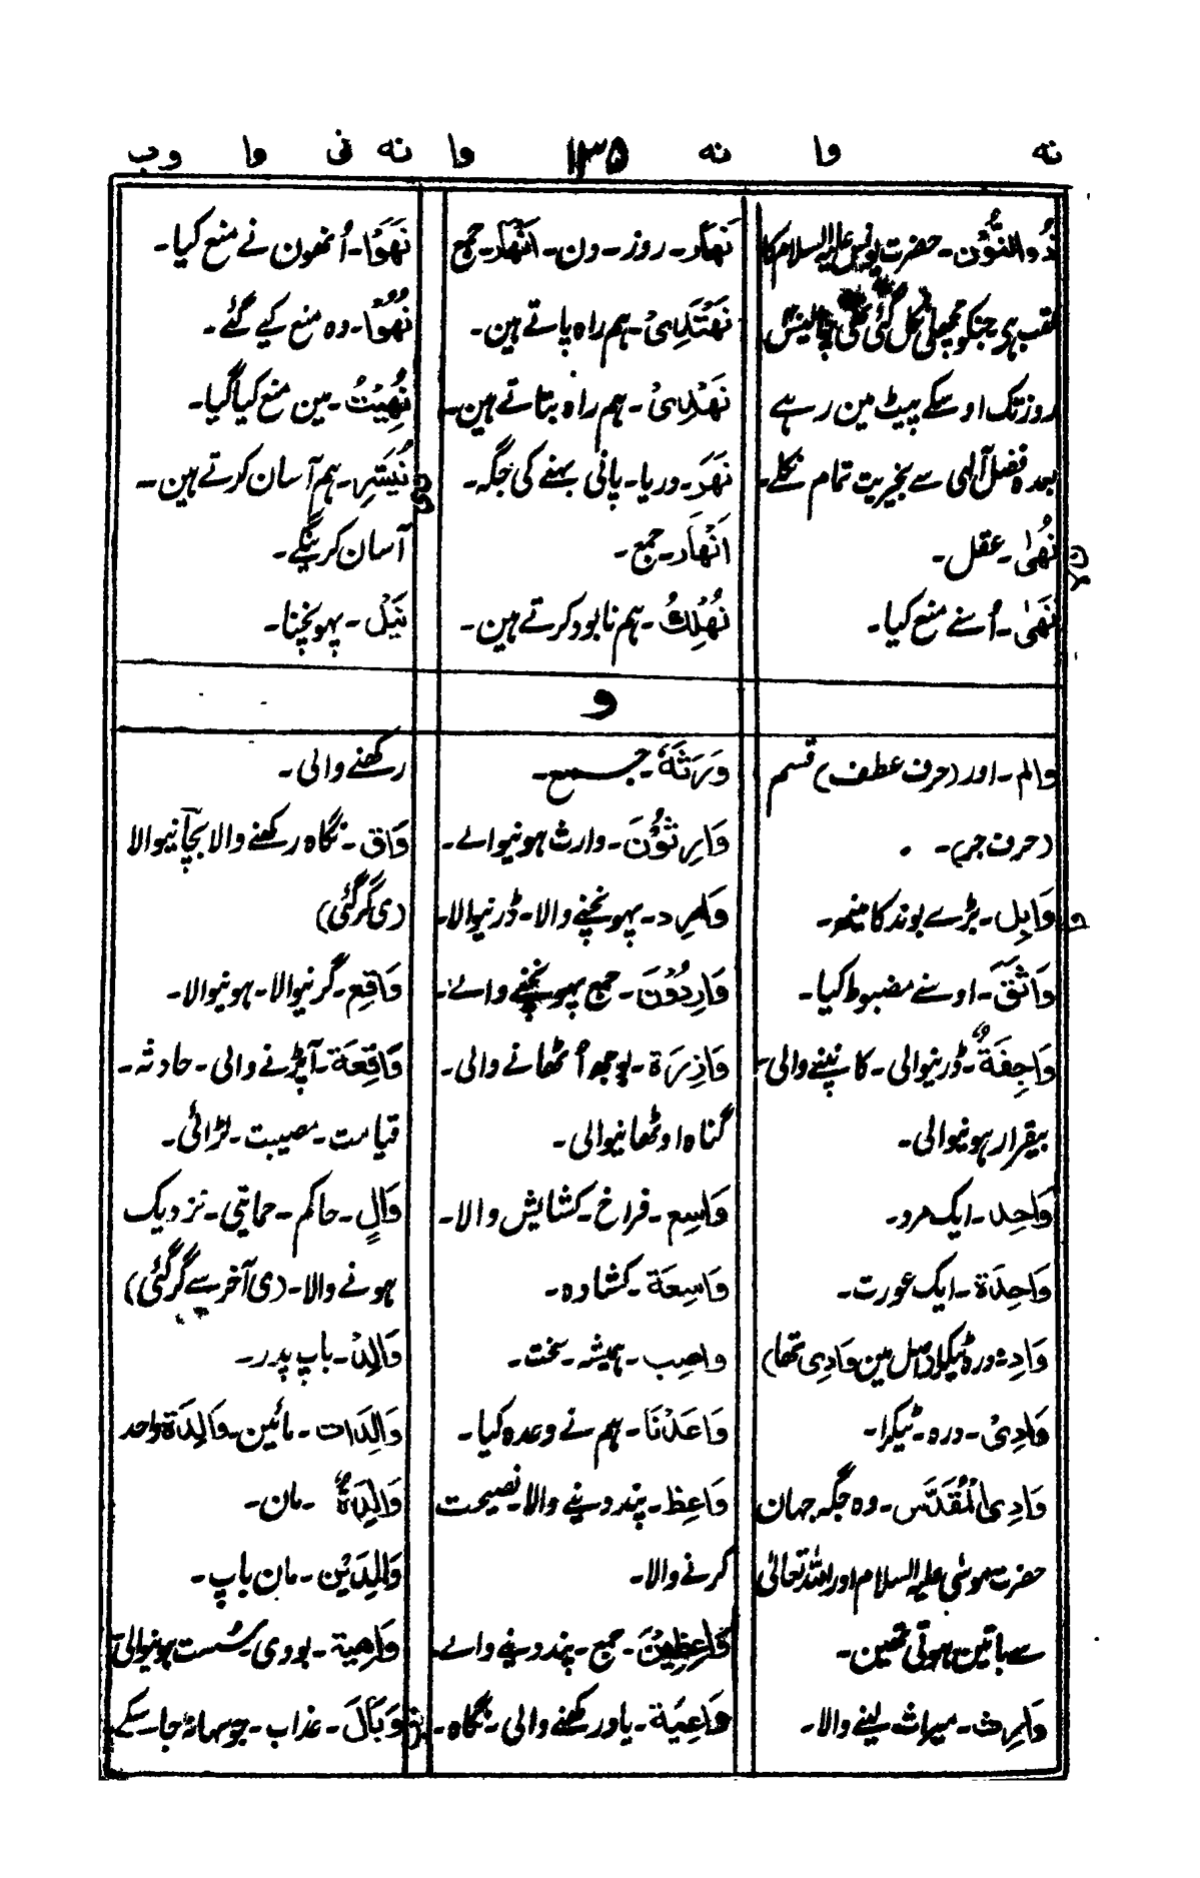 نه وا نه ۱۳۵ وا نه نی وا وب
ذُوالنُّوْن۔ حضرت یونس علیہ السلام کا
لقب ہی جنکو مچھلی نگل گئی تھی چالیس
روز تک اوسکے پیٹ مین رہے
بعدہ فضل آلہی سے بخیریت تمام نکلے۔
نُھٰی۔ عقل۔
نَھٰی۔ اُسنے منع کیا۔
نَھَار۔ روز۔ دن۔ اَنْھَار۔ جمع
نَھْتَدِیْ۔ ہم راہ پاتے ہین۔
نَھْدِیْ۔ ہم راہ بتاتے ہین۔
نَھَر۔ دریا۔ پانی بہنے کی جگہ۔
اَنْھَار۔ جمع۔
نُھْلِكُ۔ ہم نابود کرتے ہین۔
نَھَوْا۔ اُنھون نے منع کیا۔
نُھُوْا۔ وہ منع کیے گئے۔
نُھِیْتُ۔ مین منع کیا گیا۔
نی نُیَسِّر۔ ہم آسان کرتے ہین۔
آسان کرینگے۔
نَیْل۔ پہونچنا۔
و
والم۔ اور (حرف عطف) قسم
(حرف جر)۔
وَابِل۔ بڑے بوند کا مینھ۔
وَاثَقَ۔ اوسنے مضبوط کیا۔
وَاجِفَةٌ۔ ڈرنیوالی۔ کانپنے والی۔
بیقرار ہونیوالی۔
وَاحِد۔ ایک مرد۔
وَاحِدَة۔ ایک عورت۔
وَادِ۔ درہ ٹیکرا (اصل مین وَادِی تھا)
وَادِیْ۔ درہ۔ ٹیکرا۔
وَادِی الْمُقَدَّس۔ وہ جگہ جہان
حضرت موسٰی علیہ السلام اور اللہ تعالیٰ
سے باتین ہوتی تھین۔
وَارِث۔ میراث لینے والا۔
وَرَثَةٌ۔ جمع۔
وَارِثُوْنَ۔ وارث ہونیوالے۔
وَارِد۔ پہونچنے والا۔ ڈرنیوالا۔
وَارِدُوْنَ۔ جمع پہونچنے والے۔
وَازِرَة۔ بوجھ اُٹھانے والی۔
گناہ اوٹھانیوالی۔
وَاسِع۔ فراخ۔ کشایش والا۔
وَاسِعَة۔ کشادہ۔
واصِب۔ ہمیشہ۔ سخت۔
وَاعَدْنَا۔ ہم نے وعدہ کیا۔
وَاعِظ۔ پند دینے والا۔ نصیحت
کرنے والا۔
وَاعِظِیْنَ۔ جمع۔ پند دینے والے۔
وَاعِیَة۔ یاد رکھنے والی۔ نگاہ۔
رکھنے والی۔
وَاق۔ نگاہ رکھنے والا بچانیوالا
(ی گر گئی)
وَاقِع۔ گرنیوالا۔ ہونیوالا۔
وَاقِعَة۔ آپڑنے والی۔ حادثہ۔
قیامت۔ مصیبت۔ لڑائی۔
وَالٍ۔ حاکم۔ حمایتی۔ نزدیک
ہونے والا۔ (ی آخر سے گر گئی)
وَالِدْ۔ باپ پدر۔
وَالِدَات۔ مائین۔ وَالِدَة واحد
وَالِدَةٌ۔ مان۔
وَالِدَیْن۔ مان باپ۔
وَاهِیَة۔ بودی۔ سُست ہونیوالی
وَبَالَ۔ عذاب۔ جو سہا نہ جا سکے